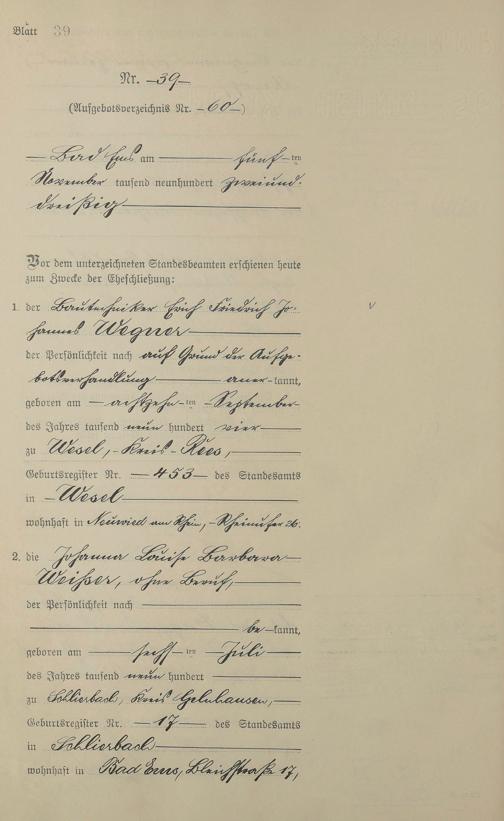 Blatt 39
Nr. 39
(Aufgebotsverzeichnis Nr. 60)
Bad Ems am fünften
November tausend neunhundert zweiund-
dreißig
Vor dem unterzeichneten Standesbeamten erschienen heute
zum Zwecke der Eheschließung:
1. der Bautechniker Erich Friedrich Jo-
hannes Wegner
der Persönlichkeit nach auf Grund der Aufge-
botsverhandlung anerkannt,
geboren am achtzehnten September
des Jahres tausend neun hundert vier
zu Wesel, Kreis Rees,
Geburtsregister Nr. 453 des Standesamts
in Wesel
wohnhaft in Neuwied am Rhein, Rheinufer 26.
2. die Johanna Louise Barbara
Weißer, ohne Beruf,
der Persönlichkeit nach
bekannt,
geboren am sechsten Juli
des Jahres tausend neun hundert
zu Schlierbach, Kreis Gelnhausen,
Geburtsregister Nr. 17 des Standesamts
in Schlierbach
wohnhaft in Bad Ems, Bleichstraße 17,